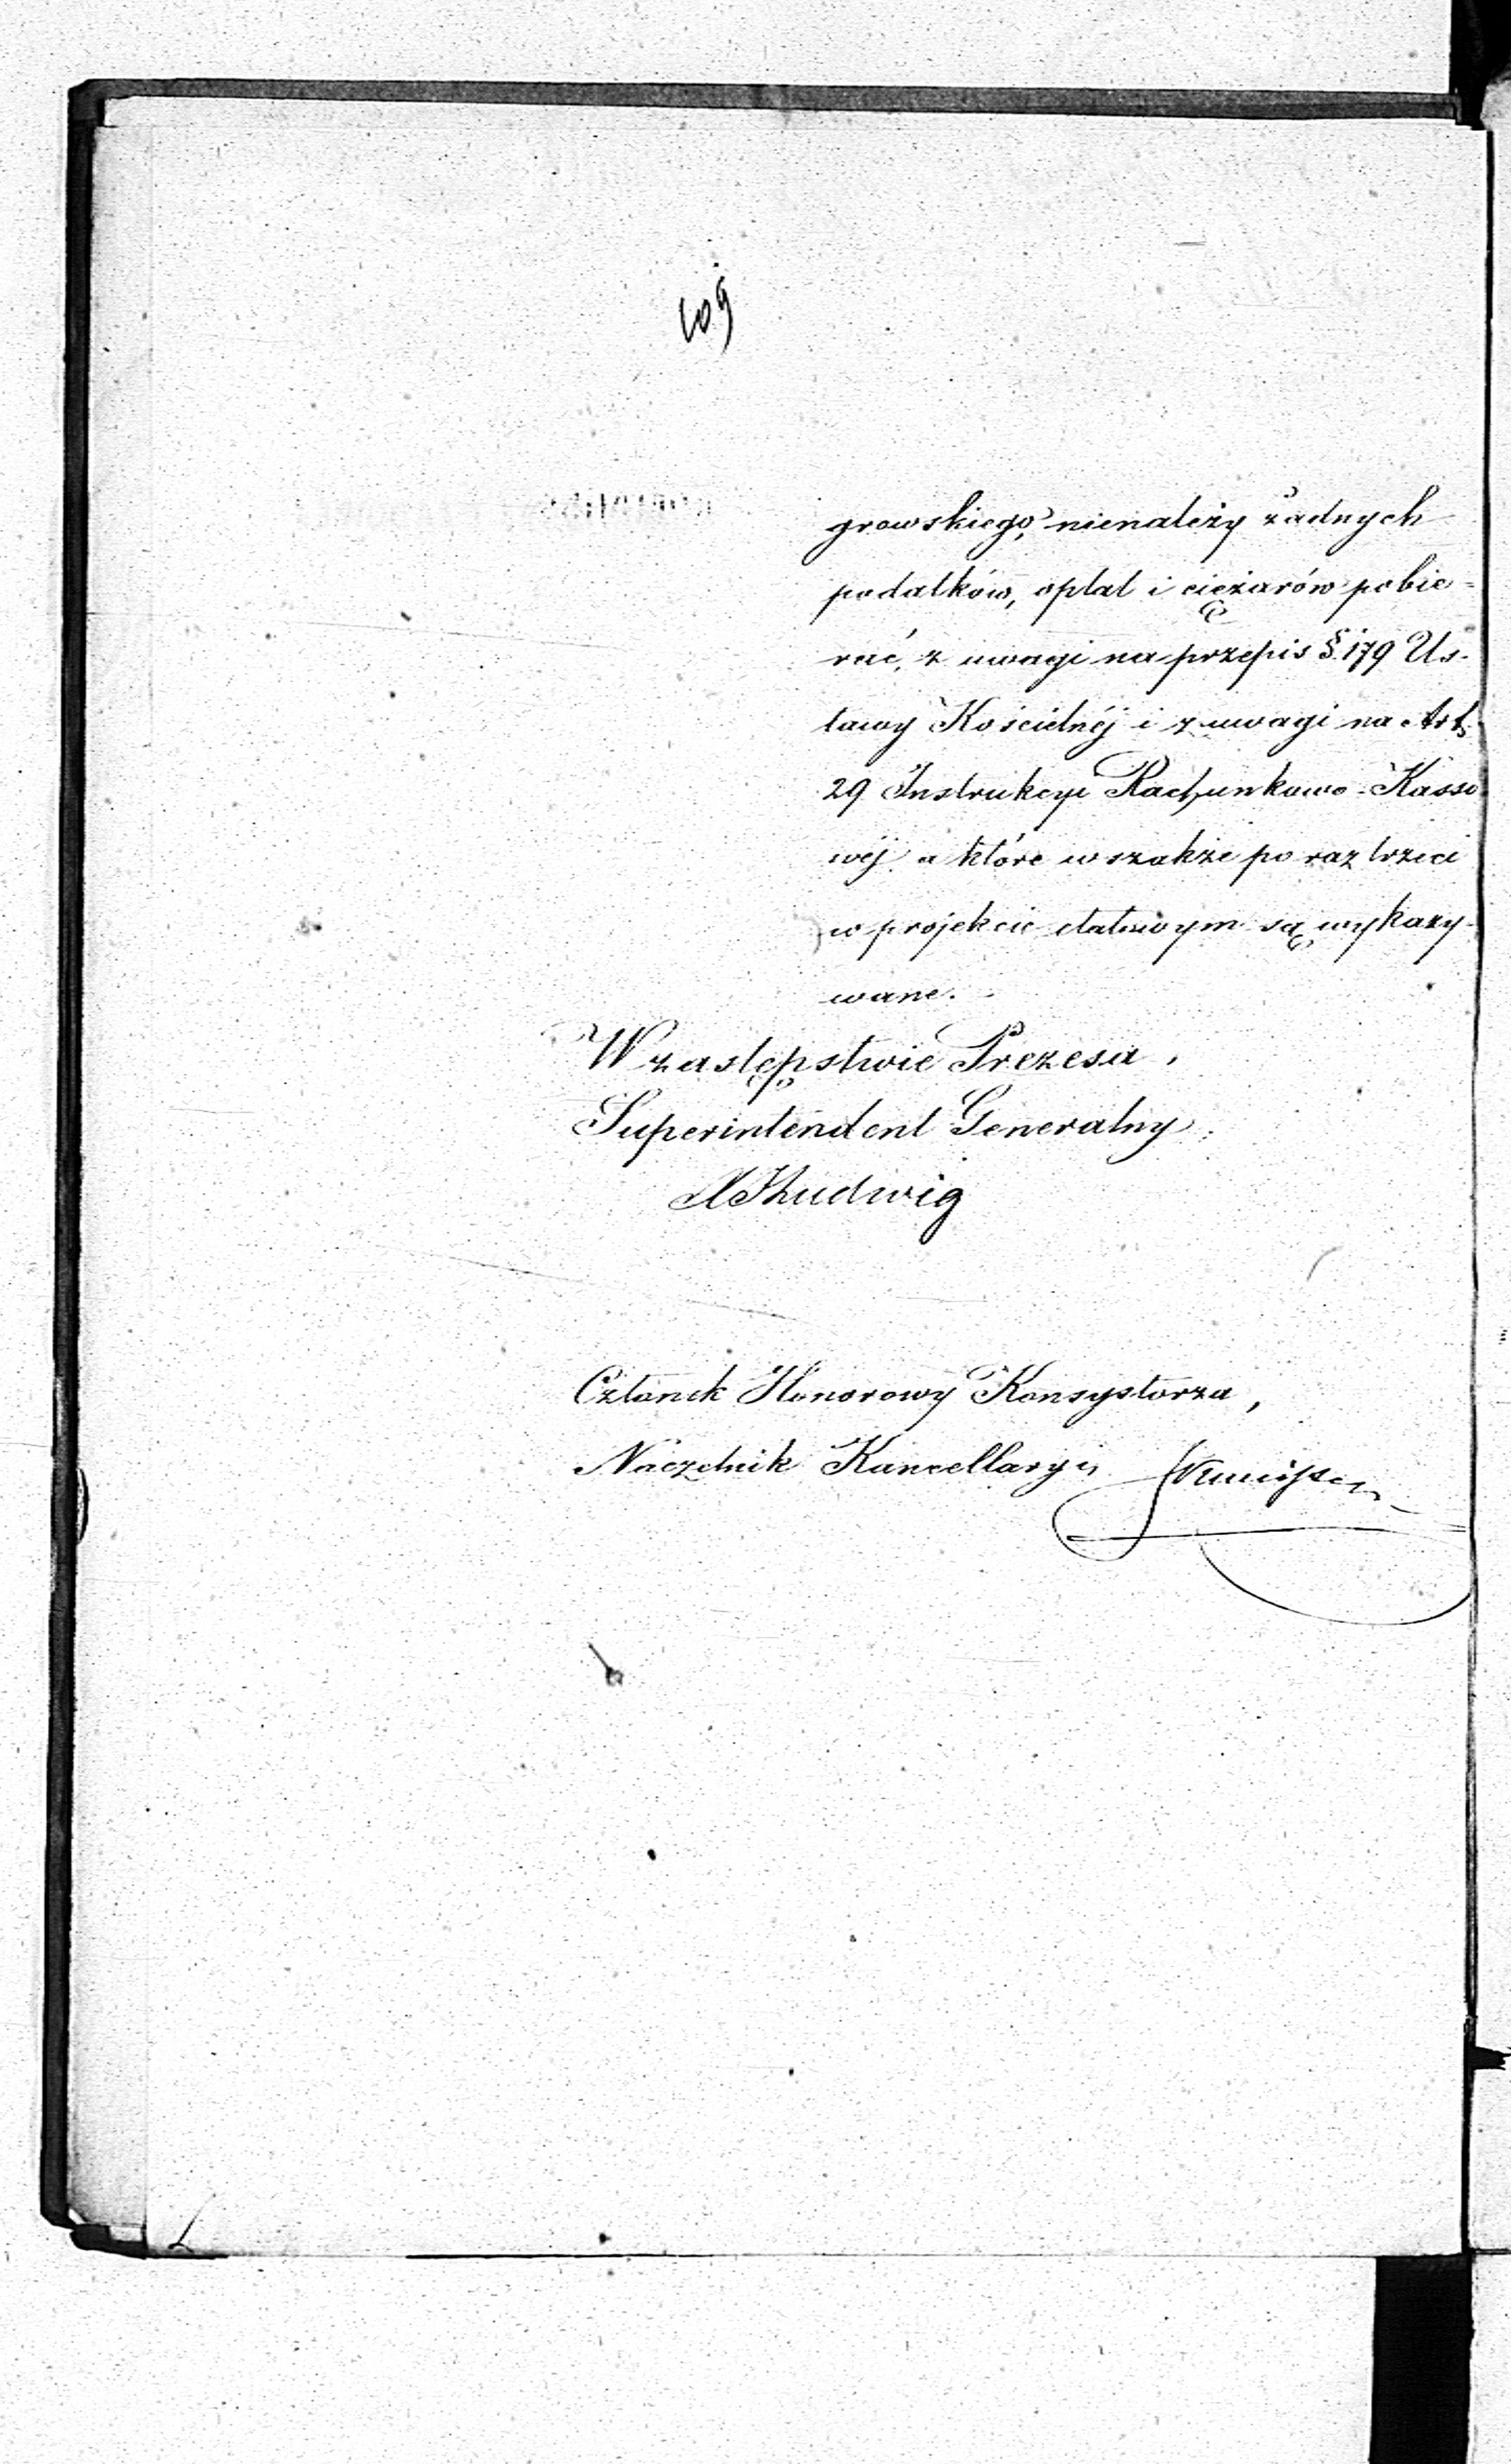 109
growskiego, nienależy żadnych
podatków, opłat i ciężarów pobie=
rać, z uwagi na przepis §. 179 Us-
tawy Kościelnéj i z uwagi na Art.
29 Instrukcyi Rachunkowo-Kasso
wéj a które wszakże po raz trzeci
w projekcie etatowym są wykazy-
wane.
W zastępstwie Prezesa,
Superintendent Generalny
Ludwig
Członek Honorowy Konsystorza,
Naczelnik Kancellaryi